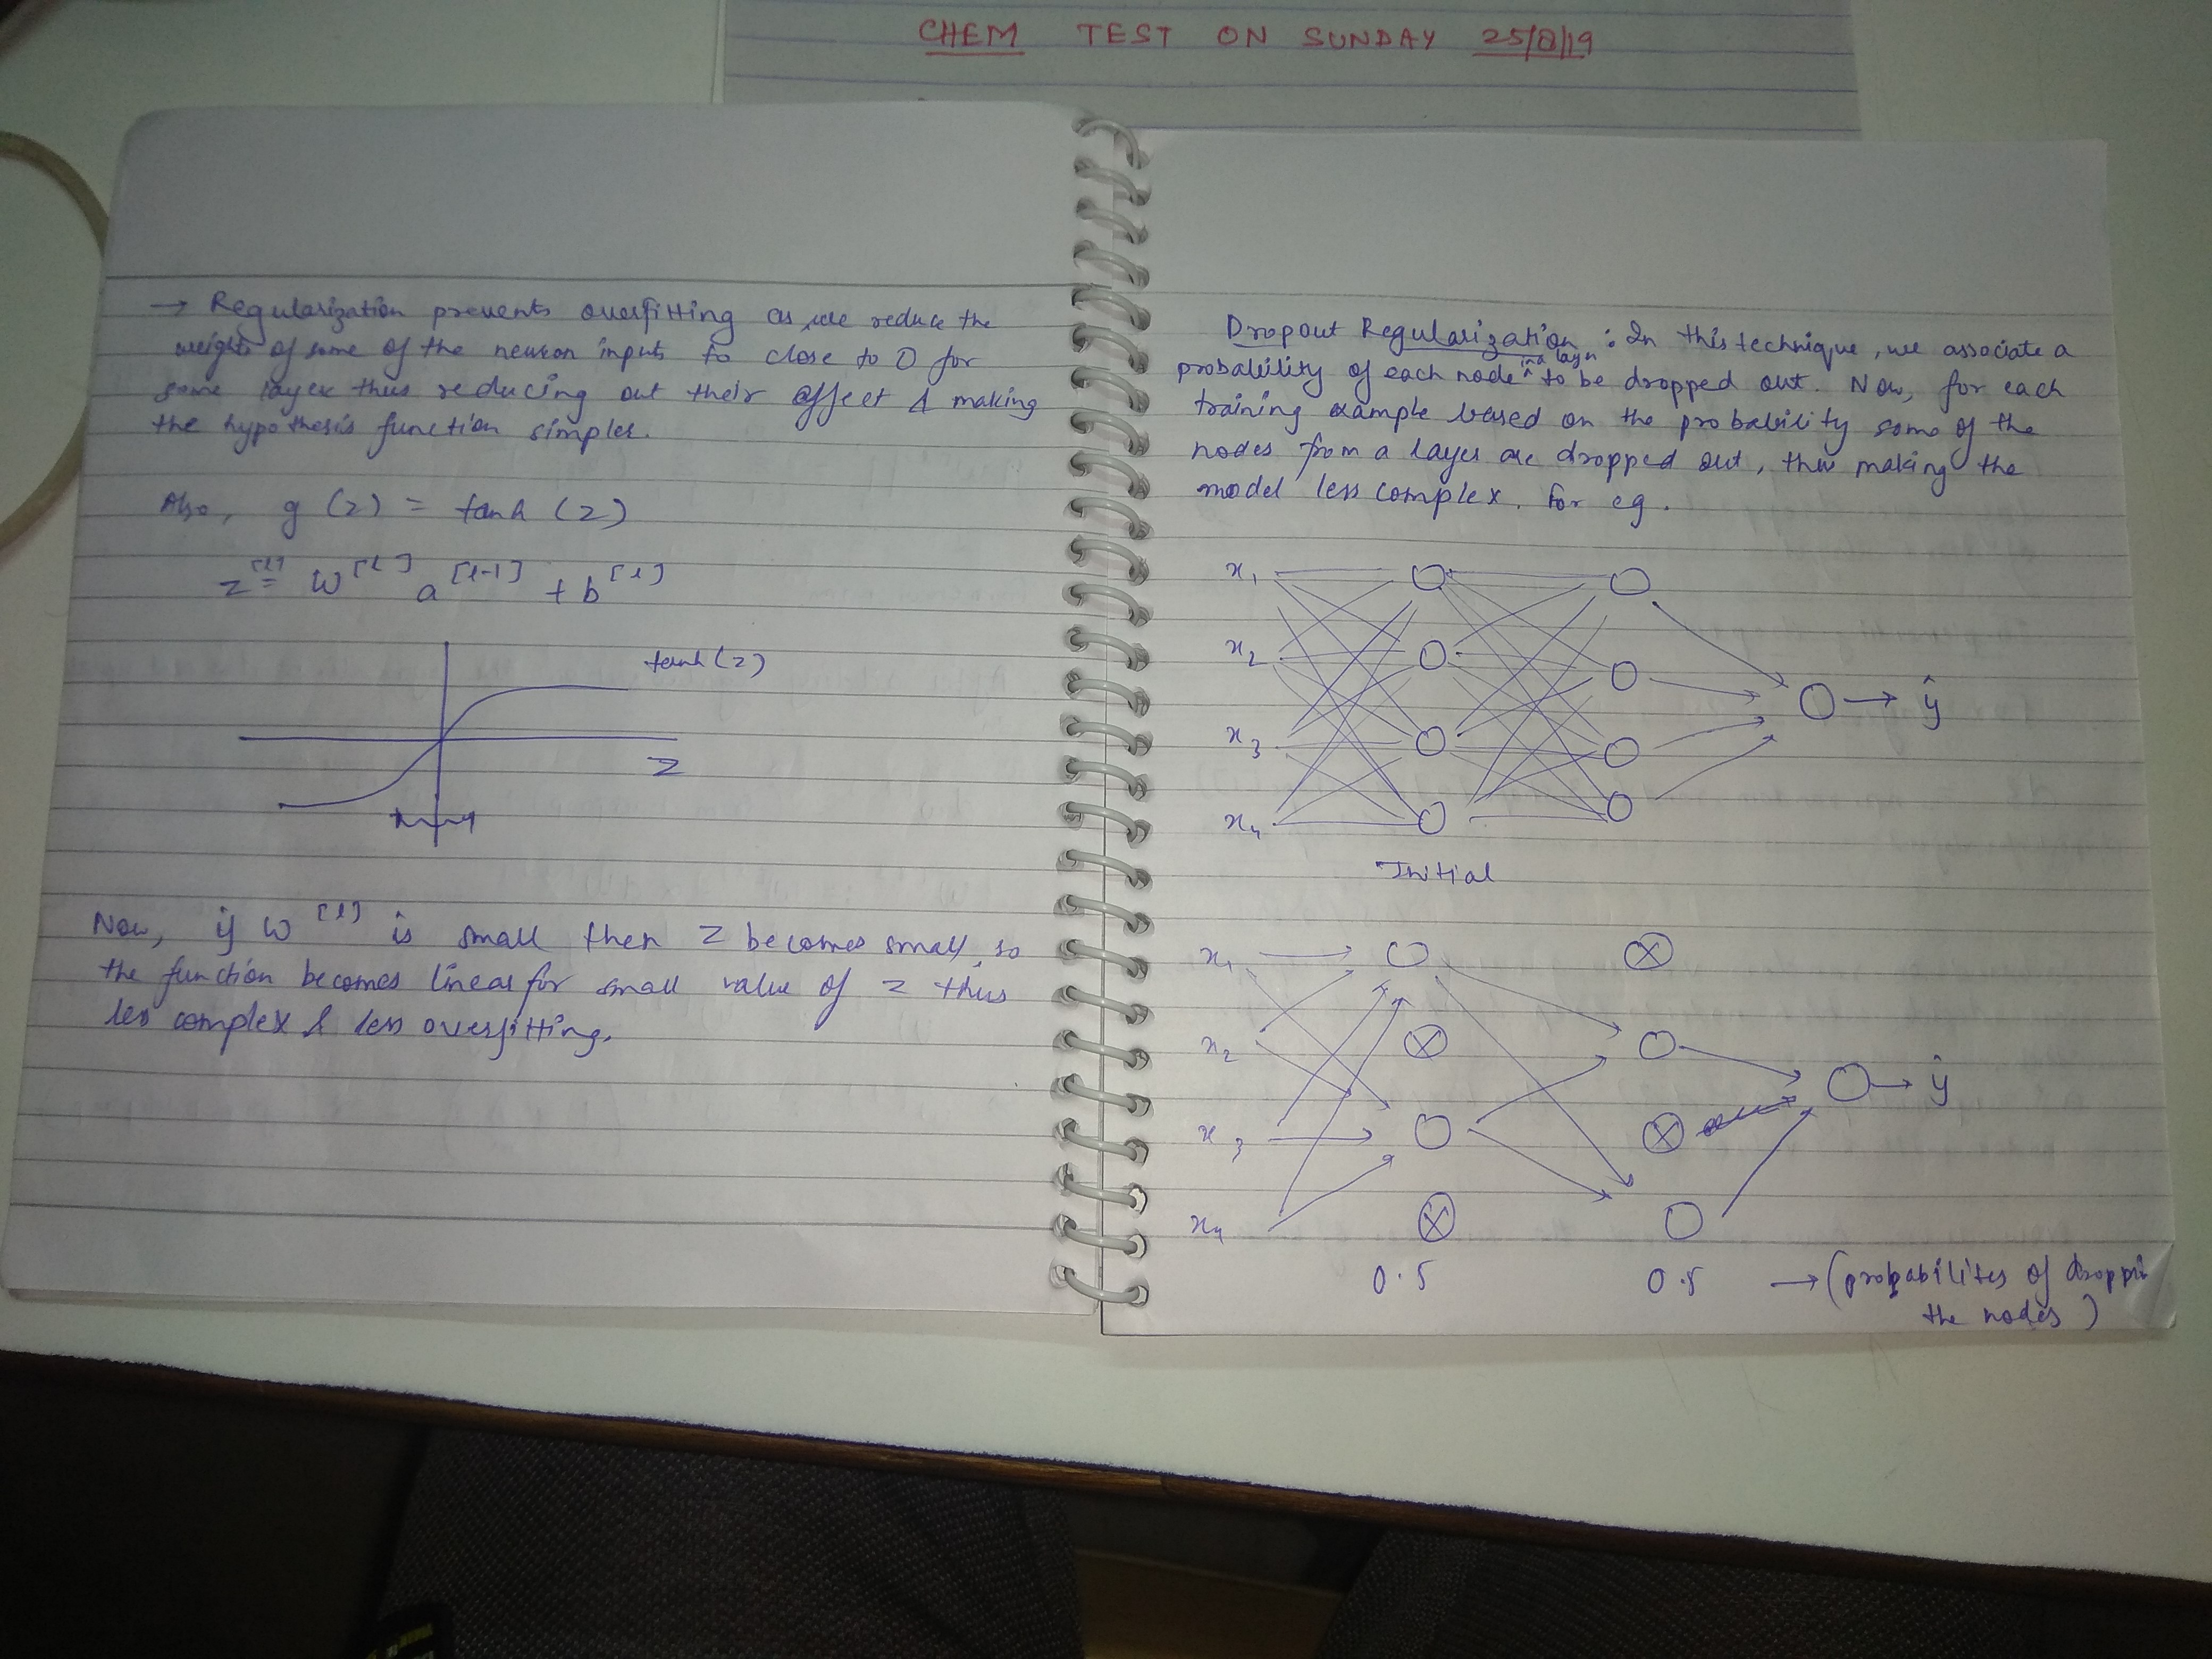 CHEM TEST ON SUNDAY 25/8/19
→ Regularization prevents overfitting as we reduce the
weights of some of the neuron inputs to close to 0 for
some layer thus reducing out their effect & making
the hypothesis function simpler.
Also, g(z) = tanh(z)
z[l] = w[l] a[l-1] + b[l]
tanh(z)
z
Now, if w[l] is small then z becomes small, so
the function becomes linear for small value of z thus
less complex & less overfitting.
Dropout Regularization : In this technique, we associate a
probability of each node in a layer to be dropped out. Now, for each
training example based on the probability some of the
nodes from a layer are dropped out, thus making the
model less complex. For eg.
x1
x2
x3
x4
ŷ
Initial
x1
x2
x3
x4
ŷ
0.5 0.5 → (probabilites of droppin
the nodes)